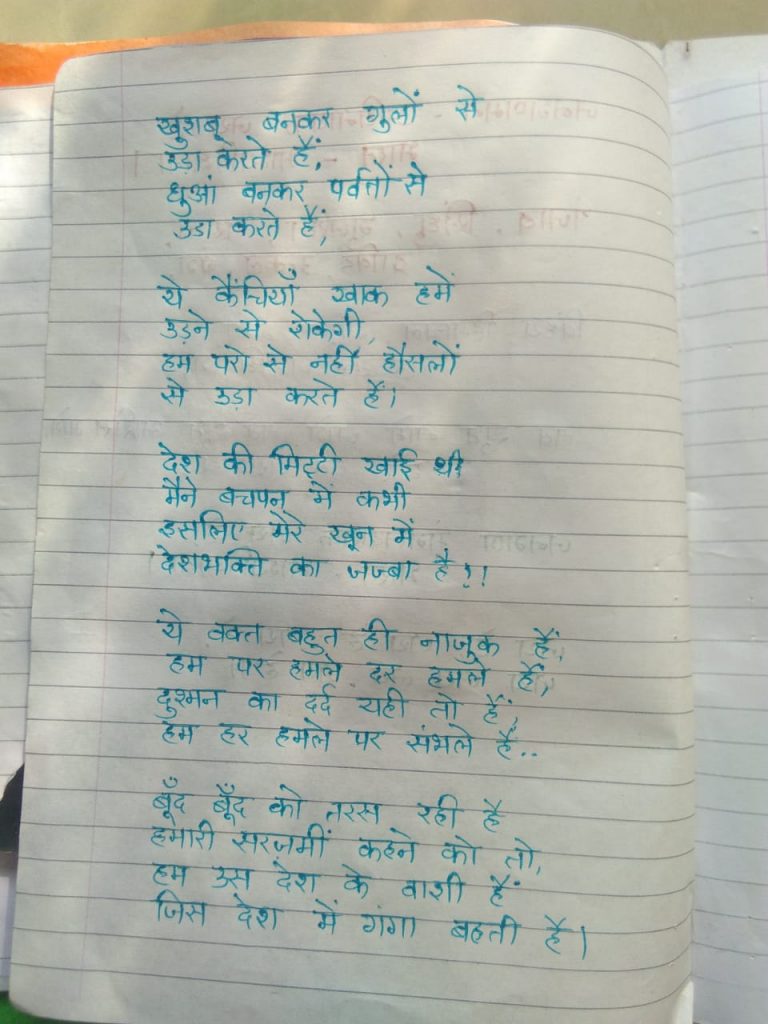 खुशबू बनकर गुलों से
उड़ा करते हैं,
धुआं बनकर पर्वतों से
उडा करते हैं,
ये कैंचियाँ खाक हमें
उड़ने से रोकेगी,
हम परो से नहीं हौसलों
से उड़ा करते हैं।
देश की मिट्टी खाई थी
मैने बचपन में कभी
इसलिए मेरे खून में
देशभक्ति का जज्बा है !!
ये वक्त बहुत ही नाजुक हैं,
हम पर हमले दर हमले हैं,
दुश्मन का दर्द यही तो हैं,
हम हर हमले पर संभले हैं..
बूँद बूँद को तरस रही है
हमारी सरजमीं कहने को तो,
हम उस देश के वाशी हैं
जिस देश में गंगा बहती है।